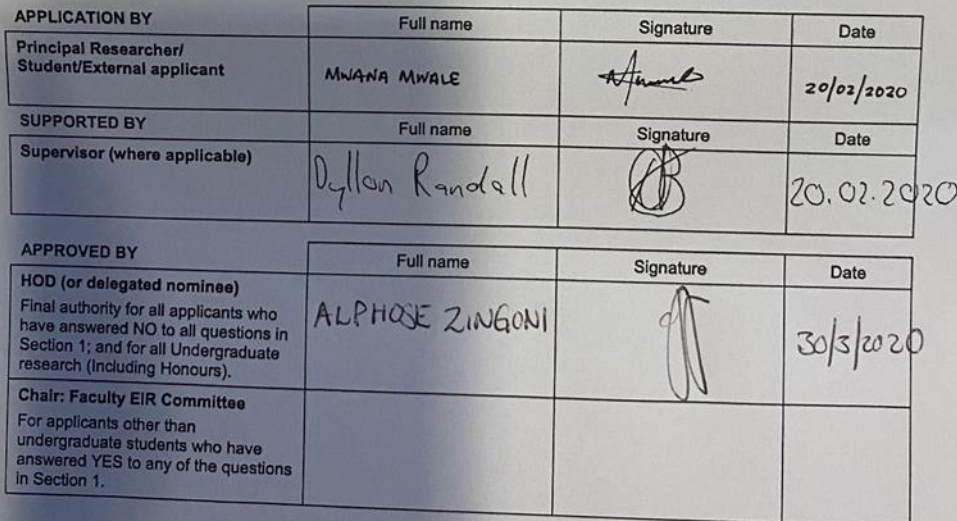 APPLICATION BY Full name Signature Date
Principal Researcher/
Student/External applicant
MWANA MWALE 20/02/2020
SUPPORTED BY Full name Signature Date
Supervisor (where applicable)
Dyllon Randall 20.02.2020
APPROVED BY Full name Signature Date
HOD (or delegated nominee)
Final authority for all applicants who
have answered NO to all questions in
Section 1; and for all Undergraduate
research (Including Honours).
ALPHOSE ZINGONI 30/3/2020
Chair: Faculty EIR Committee
For applicants other than
undergraduate students who have
answered YES to any of the questions
in Section 1.